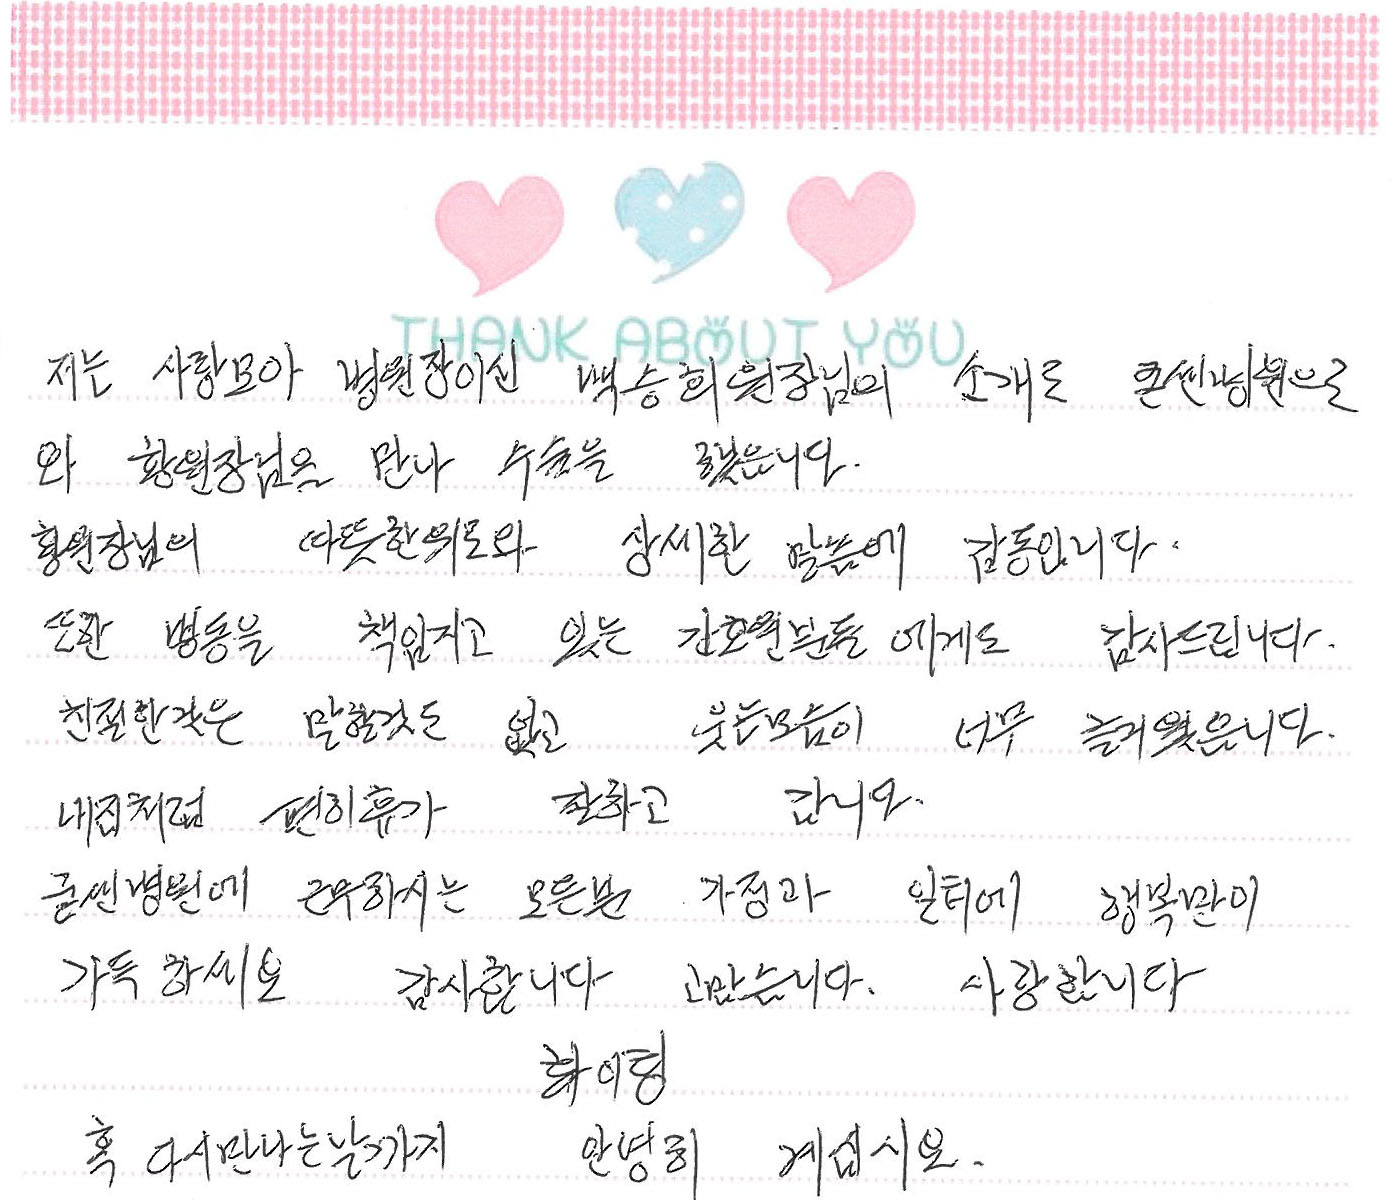 THANK ABOUT YOU
저는 사랑모아 병원장이신 백승희원장님의 소개로 큰씬병원으로
와 황원장님을 만나 수술을 했읍니다.
황원장님의 따뜻한위로와 상세한 말씀에 감동입니다.
또한 병동을 책임지고 있는 간호원분들 에게도 감사드립니다.
친절한것은 말할것도 없고 웃는모습이 너무 즐거웠읍니다.
내집처럼 편히휴가 잘하고 갑니다.
굳씬병원에 근무하시는 모든분 가정과 일터에 행복만이
가득 하씨요 감사합니다 고맙습니다. 사랑합니다
화이팅
혹 다시만나는날까지 안녕히 계십시요.